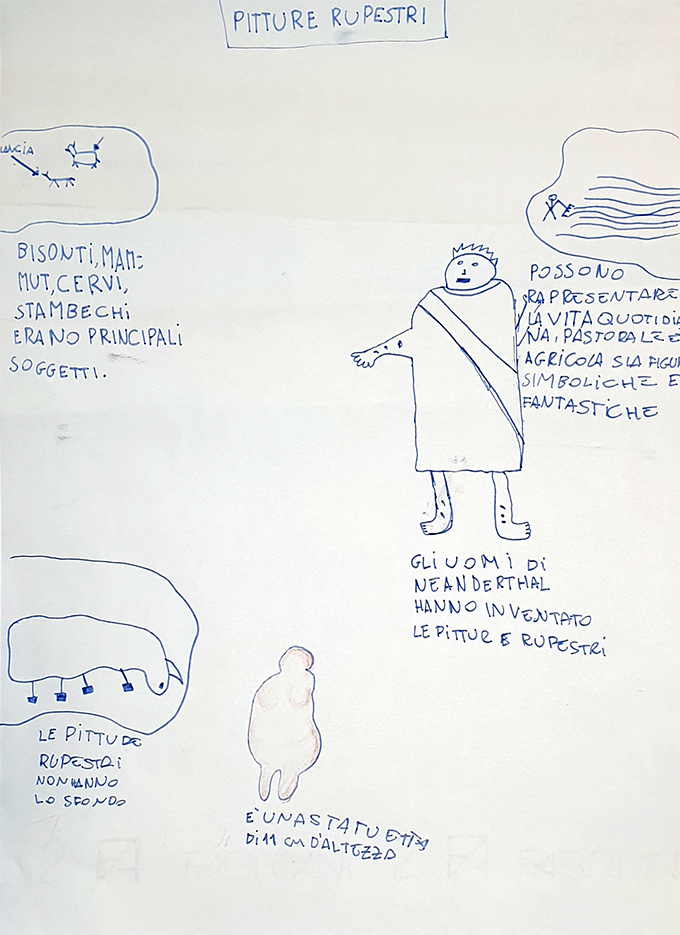 PITTURE RUPESTRI
LANCIA
BISONTI, MAM=
MUT, CERVI,
STAMBECHI
ERANO PRINCIPALI
SOGGETTI.
POSSONO
RAPRESENTARE
LA VITA QUOTIDIA
NA, PASTORALE E
AGRICOLA SIA FIGUR
SIMBOLICHE E
FANTASTICHE
GLI UOMI DI
NEANDERTHAL
HANNO INVENTATO
LE PITTURE RUPESTRI
LE PITTUDE
RUPESTRI
NON HANNO
LO SFONDO
È UNA STATUETTA
DI 11 CM D'ALTEZZA